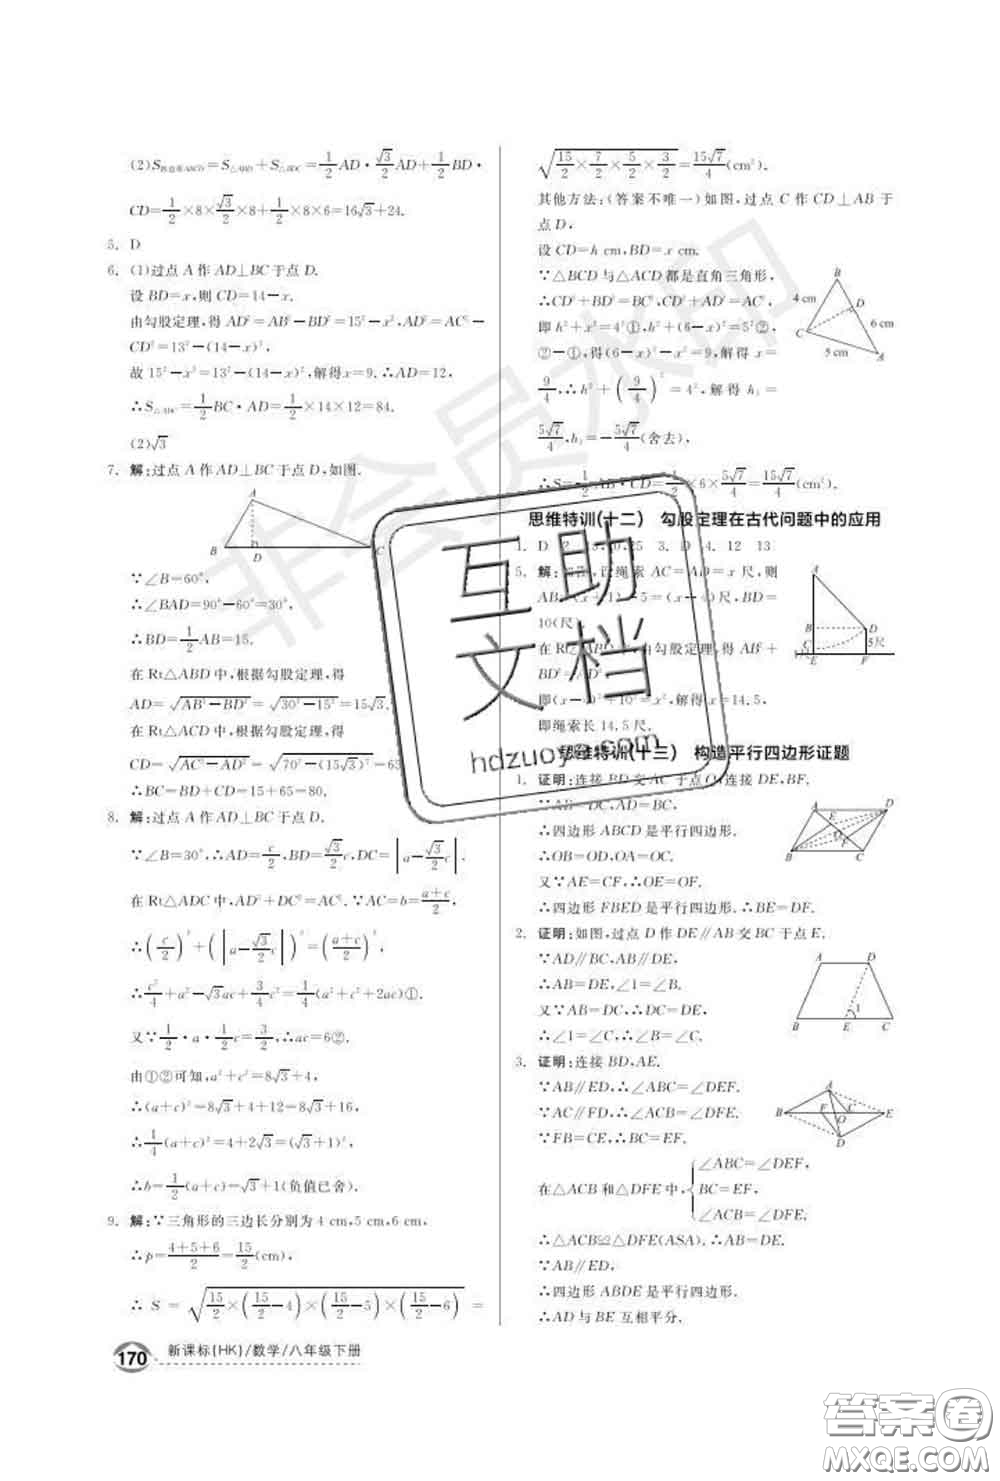 (2)S四边形ABCD=S△ABD+S△BDC=1/2AD·√3/2AD+1/2BD·
CD=1/2×8×√3/2×8+1/2×8×6=16√3+24.
5. D
6. (1)过点A作AD⊥BC于点D.
设BD=x,则CD=14-x.
由勾股定理,得AD²=AB²-BD²=15²-x²,AD²=AC²-
CD²=13²-(14-x)²,
故15²-x²=13²-(14-x)²,解得x=9.∴AD=12,
∴S△ABC=1/2BC·AD=1/2×14×12=84.
(2)√3
7. 解:过点A作AD⊥BC于点D,如图.
A
B
D
C
∵∠B=60°,
∴∠BAD=90°-60°=30°,
∴BD=1/2AB=15.
在Rt△ABD中,根据勾股定理,得
AD=√(AB²-BD²)=√(30²-15²)=15√3.
在Rt△ACD中,根据勾股定理,得
CD=√(AC²-AD²)=√(70²-(15√3)²)=65
∴BC=BD+CD=15+65=80.
8. 解:过点A作AD⊥BC于点D.
∵∠B=30°,∴AD=c/2,BD=√3/2c,DC=|a-√3/2c|.
在Rt△ADC中,AD²+DC²=AC².∵AC=b=(a+c)/2,
∴(c/2)²+(|a-√3/2c|)²=((a+c)/2)²
∴c²/4+a²-√3ac+3/4c²=1/4(a²+c²+2ac)①.
又∵1/2·a·1/2c=3/2,∴ac=6②.
由①②可知,a²+c²=8√3+4,
∴(a+c)²=8√3+4+12=8√3+16,
∴1/4(a+c)²=4+2√3=(√3+1)²,
∴b=1/2(a+c)=√3+1(负值已舍).
9. 解:∵三角形的三边长分别为4 cm,5 cm,6 cm,
∴p=(4+5+6)/2=15/2(cm),
∴ S = √(15/2×(15/2-4)×(15/2-5)×(15/2-6)) =
170 新课标(HK)/数学/八年级下册
√(15/2×7/2×5/2×3/2)=15√7/4(cm²).
其他方法:(答案不唯一)如图,过点C作CD⊥AB于
点D,
设CD=h cm,BD=x cm.
∵△BCD与△ACD都是直角三角形,
∴CD²+BD²=BC²,CD²+AD²=AC²,
即h²+x²=4²①,h²+(6-x)²=5²②,
②-①,得(6-x)²-x²=9,解得x=
9/4,∴h²+(9/4)²=4²,解得h₁=
5√7/4,h₂=-5√7/4(舍去),
B
4 cm
D
6 cm
C
5 cm
A
∴S=1/2AB·CD=1/2×6×5√7/4=15√7/4(cm²).
思维特训(十二) 勾股定理在古代问题中的应用
1. D 3. D 4. 12 13
5. 解: 绳索AC=AD=x尺,则
10(尺
勾股定理,得AB²+
解得x=14.5,
即绳索长14.5尺.
B
D
C
5尺
E
F
思维特训(十三) 构造平行四边形证题
1. 证明:连接BD交AC于点O,连接DE,BF.
∵AB=DC,AD=BC,
∴四边形ABCD是平行四边形.
∴OB=OD,OA=OC.
又∵AE=CF,∴OE=OF.
∴四边形FBED是平行四边形.∴BE=DF.
A
D
E
O
F
B
C
2. 证明:如图,过点D作DE∥AB交BC于点E.
∵AD∥BC,AB∥DE,
∴AB=DE,∠1=∠B.
又∵AB=DC,∴DC=DE.
∴∠1=∠C,∴∠B=∠C.
A
D
1
B
E
C
3. 证明:连接BD,AE.
∵AB∥ED,∴∠ABC=∠DEF.
∵AC∥FD,∴∠ACB=∠DFE.
∵FB=CE,∴BC=EF.
在△ACB和△DFE中,{∠ABC=∠DEF,
BC=EF,
∠ACB=∠DFE.
∴△ACB≌△DFE(ASA).∴AB=DE.
∵AB∥ED,
∴四边形ABDE是平行四边形.
∴AD与BE互相平分.
A
B
F
C
E
O
D
非会员水印
互助
文档
hdzuoye.com
答案圈
MXQE.COM